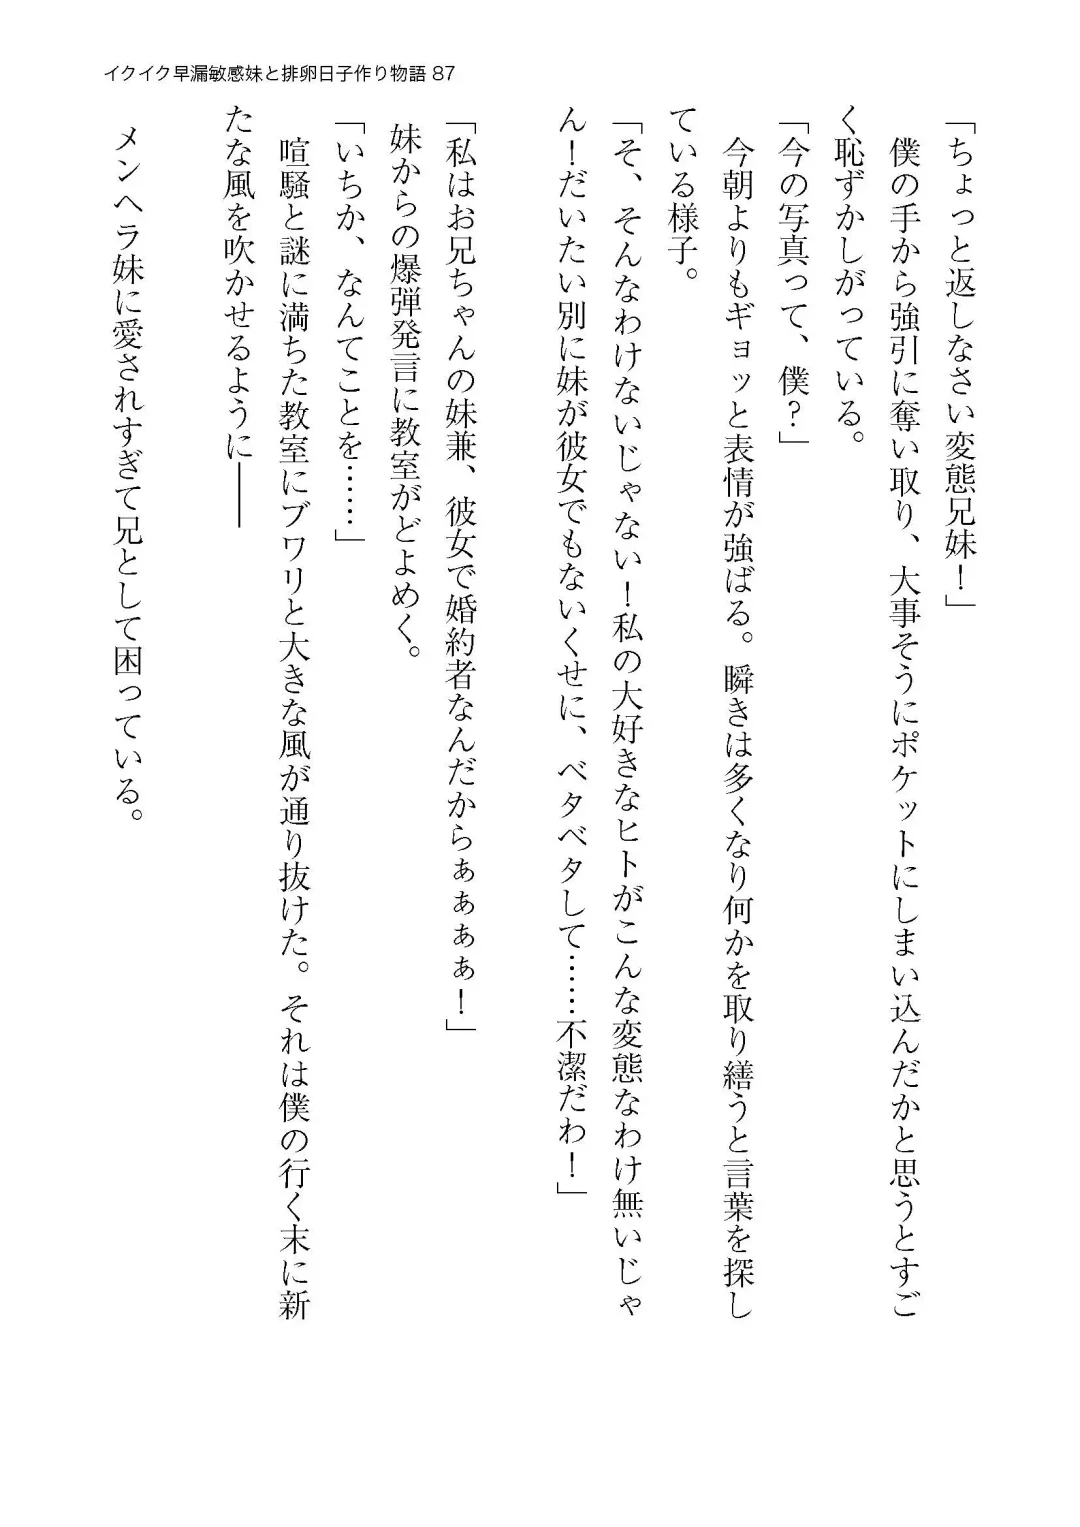 イクイク早漏敏感妹と排卵日子作り物語 87
「ちょっと返しなさい変態兄妹！」
僕の手から強引に奪い取り、大事そうにポケットにしまい込んだかと思うとすご
く恥ずかしがっている。
「今の写真って、僕？」
今朝よりもギョッと表情が強ばる。瞬きは多くなり何かを取り繕うと言葉を探し
ている様子。
「そ、そんなわけないじゃない！私の大好きなヒトがこんな変態なわけ無いじゃ
ん！だいたい別に妹が彼女でもないくせに、ベタベタして……不潔だわ！」
「私はお兄ちゃんの妹兼、彼女で婚約者なんだからぁぁぁぁ！」
妹からの爆弾発言に教室がどよめく。
「いちか、なんてことを……」
喧騒と謎に満ちた教室にブワリと大きな風が通り抜けた。それは僕の行く末に新
たな風を吹かせるように――
メンヘラ妹に愛されすぎて兄として困っている。